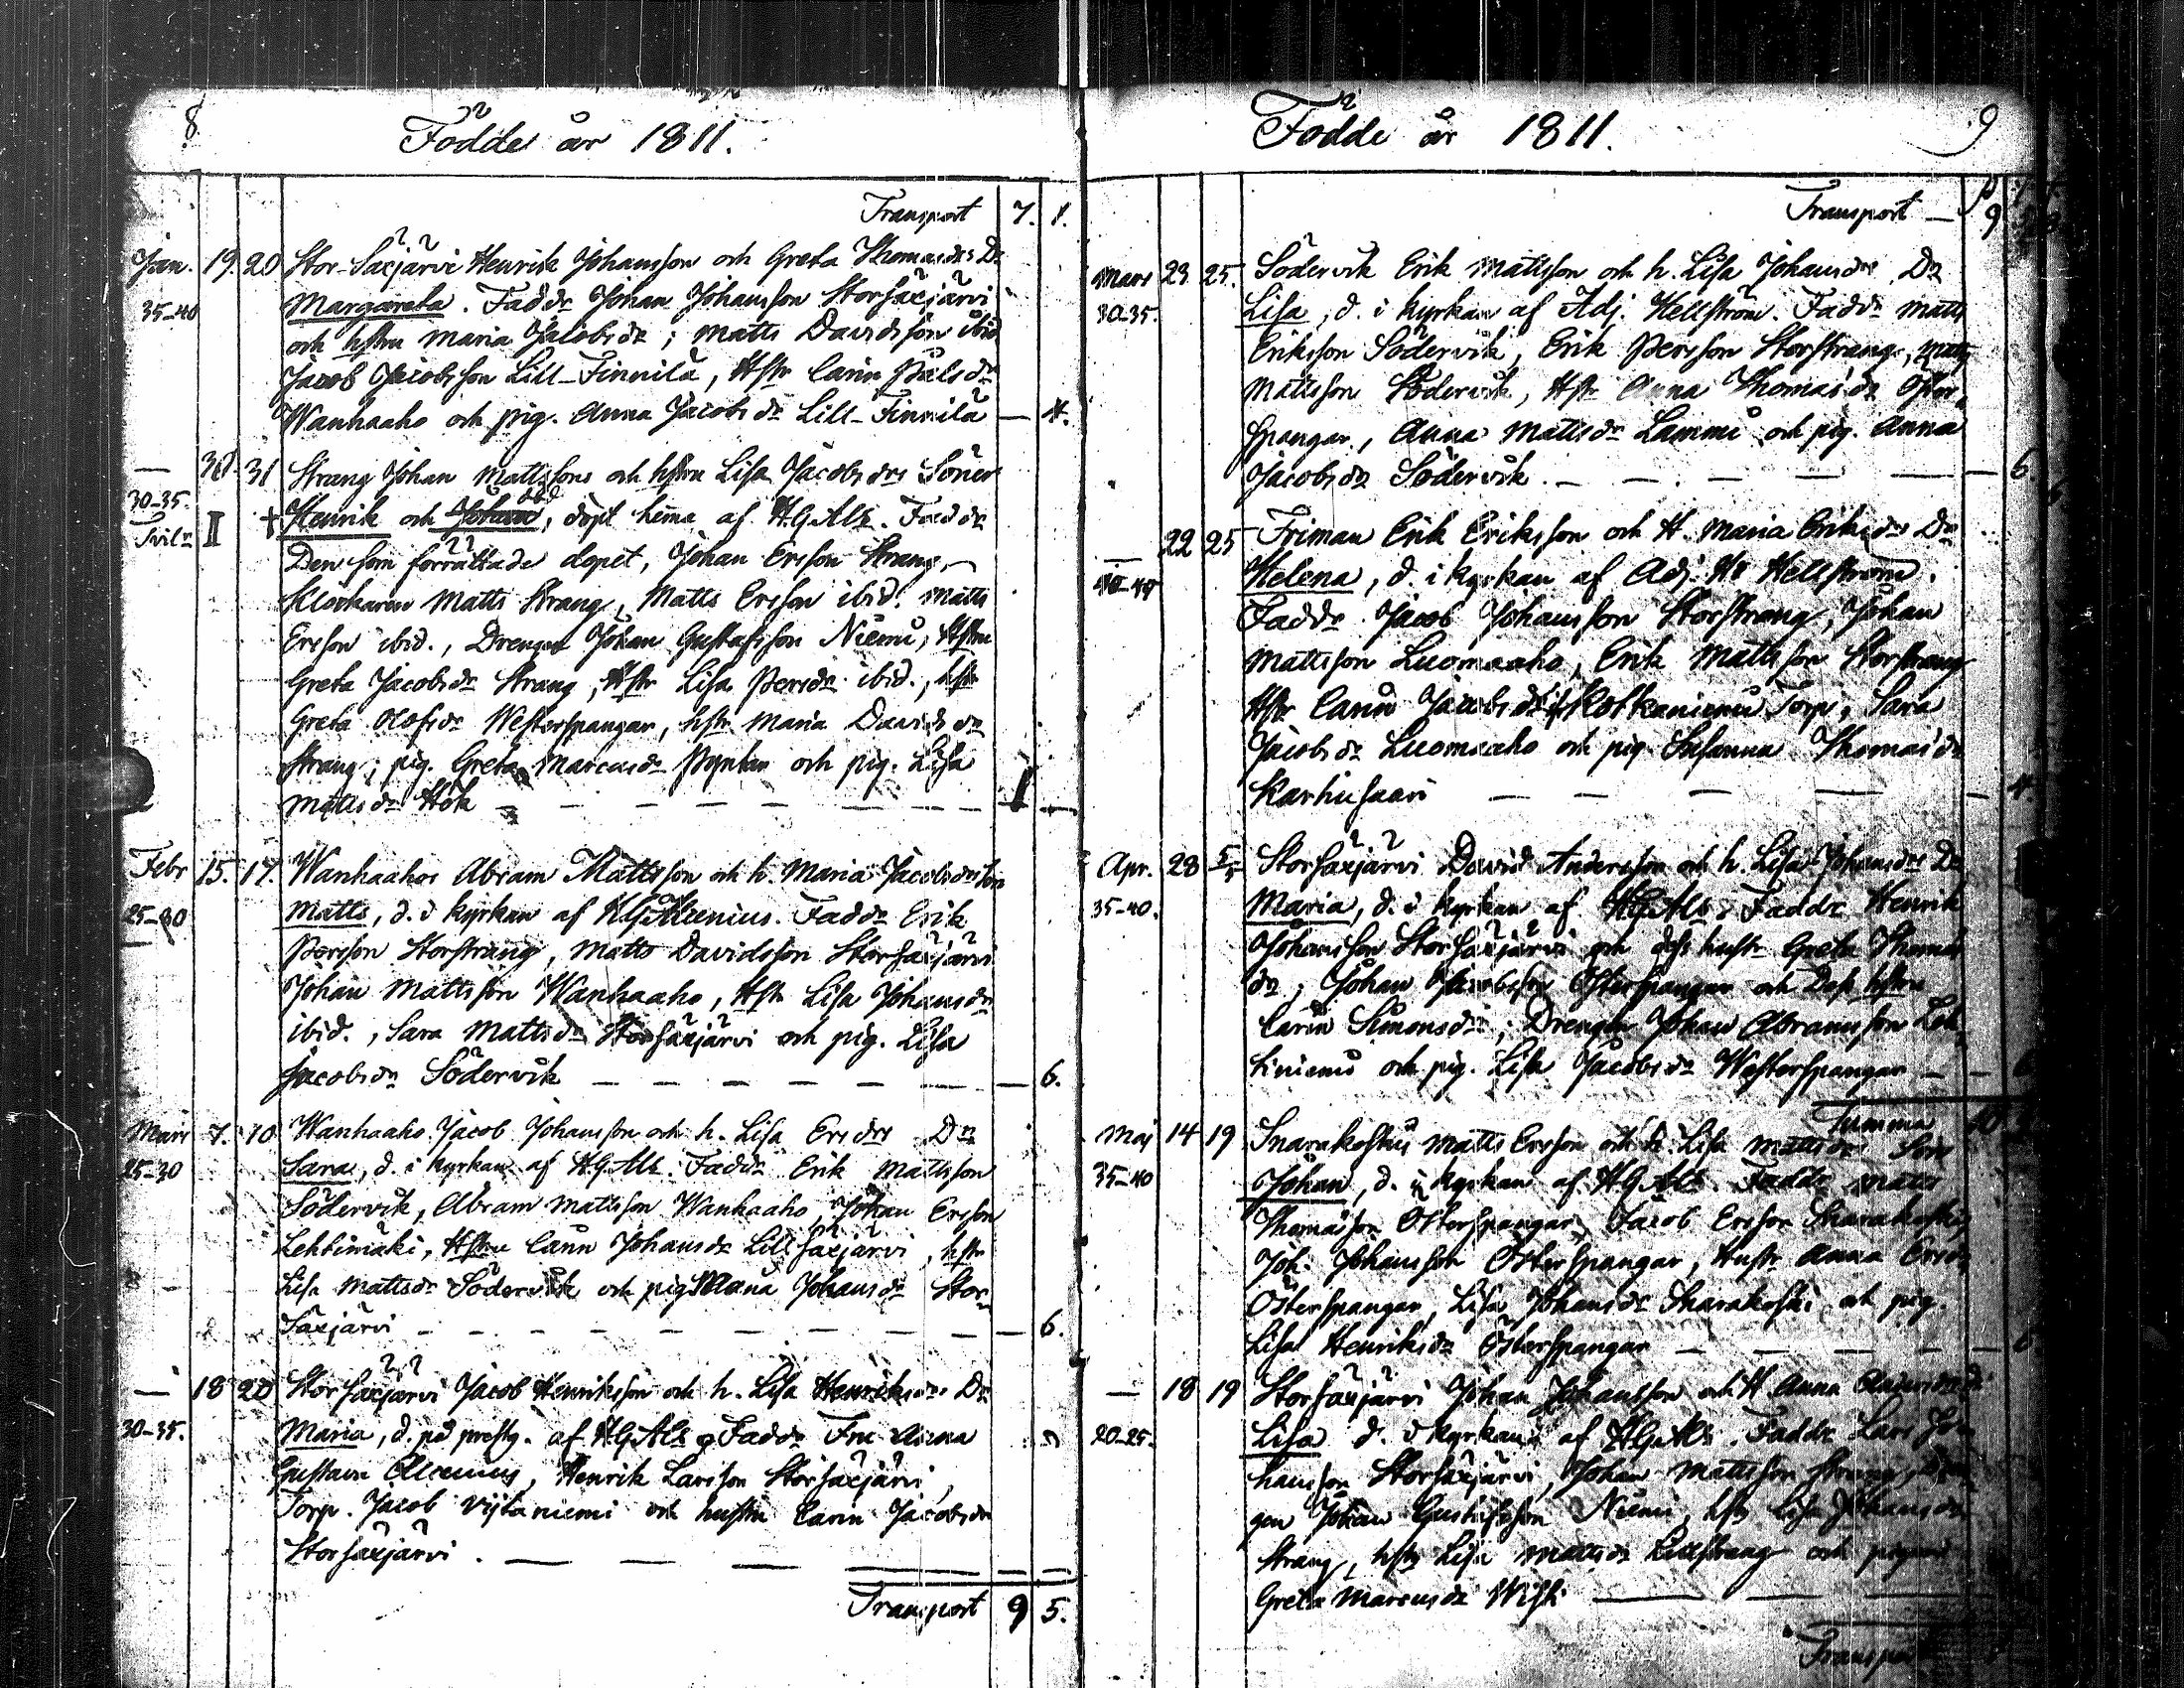 8
Födde år 1811.
Transport 7. 1.
Jan. 19. 20 Stor-Säxjärvi Henrik Johansson och Greta Thomasdrs Dr
35-40 Margareta. Faddr Johan Johansson Storsäxjärvi
och hstru Maria Jacobsdr; Matts Davidsson ibid
Jacob Jacobsson Lill-Finnilä, Hstr Carin Pålsdr
Wanhaaho och pig. Anna Jacobsdr Lill-Finnilä — 4.
— 30. 31 Strang Johan Mattssons och hstru Lisa Jacobsdrs Söner
30-35. Henrik och Johan, döpt hema af HGAls. Faddr
Tvil. II +
Den som förrättade dopet, Johan Ersson Strang,
Klockaren Matts Strang, Matts Ersson ibid. Matts
Ersson ibid., Drengen Johan Gustafsson Niemi, Hstru
Greta Jacobsdr Strang, Hstr Lisa Persdr ibid., hstr
Greta Olofsdr Westerspangar, hstr Maria Davidsdr
Strang; pig. Greta Marcusdr Pyntar och pig. Lisa
Mattsdr Hök — — — — — —
Febr 15. 17. Wanhaaho Abram Mattsson och h. Maria Jacobsdrs Son
25-30 Matts, d. i kyrkan af HGAlcenius. Faddr Erik
Persson Storstrang, Matts Davidsson Storsäxjärvi
Johan Mattsson Wanhaaho, Hstr Lisa Johansdr
ibid., Sara Mattsdr Storsäxjärvi och pig. Lisa
Jacobsdr Södervik — — — — — — 6.
Mars 7. 10 Wanhaaho Jacob Johansson och h. Lisa Ersdrs Dr
25-30 Sara, d. i kyrkan af HGAls. Faddr Erik Mattsson
Södervik, Abram Mattsson Wanhaaho, Johan Ersson
Lehtimäki, Hstru Carin Johansdr Lillsäxjärvi, hstr
Lisa Mattsdr Södervik och pig Maria Johansdr Stor-
Säxjärvi — — — — — — — — 6.
— 18 20 Storsäxjärvi Jacob Henriksson och h. Lisa Henriksdrs Dr
30-35. Maria, d. på prestg. af HGAls Faddr Fru Anna
Gustava Alcenius, Henrik Larsson Storsäxjärvi,
Torp. Jacob Vijtaniemi och hustru Carin Jacobsdr
Storsäxjärvi. — — — — —
Transport 9 5.
Födde år 1811. 9
Transport — 9
Mars 23 25. Södervik Erik Mattsson och h. Lisa Johansdrs Dr
30-35. Lisa, d. i kyrkan af Adj. Hellström. Faddr Matts
Eriksson Södervik, Erik Persson Storstrang, Matts
Mattsson Södervik, Hstr Anna Thomasdr Öster-
spangar, Anna Mattsdr Lammi och pig. Anna
Jacobsdr Södervik. — — — — — 6.
— 22 25 Friman Erik Eriksson och H. Maria Eriksdrs Dr
Helena, d. i kyrkan af Adj. Hr Hellström.
Faddr Jacob Johansson Storstrang, Johan
Mattsson Luomaaho, Erik Mattsson Storstrang
Hstr Carin Jacobsdr Kotkaniemi Torp, Sara
Jacobsdr Luomaaho och pig. Susanna Thomasdr
Karhusaari — — — — — 4
Apr. 28 5/5 Storsäxjärvi David Andersson och h. Lisa Johansdrs Dr
35-40. Maria, d. i kyrkan af HGAls. Faddr Henrik
Johansson Storsäxjärvi och dess hustr Greta Thomas
dr, Johan Jacobsson Österspangar och Dess hstru
Carin Simonsdr; Drengen Johan Abramsson Leh
tiniemi och pig. Lisa Jacobsdr Westerspangar — — 6
Summa 10
Maj 14 19 Snarakoski Matts Ersson och h. Lisa Mattsdrs Son
35-40 Johan, d. i kyrkan af HGAls. Faddr Matts
Thomasson Österspangar, Jacob Ersson Snarakoski,
Joh. Johansson Österspangar, Hustr Anna Ersdr
Österspangar, Lisa Johansdr Snarakoski och pig.
Lisa Henriksdr Österspangar — — — — — 6
— 18 19 Storsäxjärvi Johan Johansson och H Anna Andersdrs
20-25. Lisa d. i kyrkan af HGAls. Faddr Lars Jo
hansson Storsäxjärvi, Johan Mattsson Strang, Dren
gen Johan Gustafsson Niemi, hstr Lisa Johansdr
Strang, hstr Lisa Mattsdr Lillstrang och pigan
Greta Marcusdr Wisti — — —
Transport